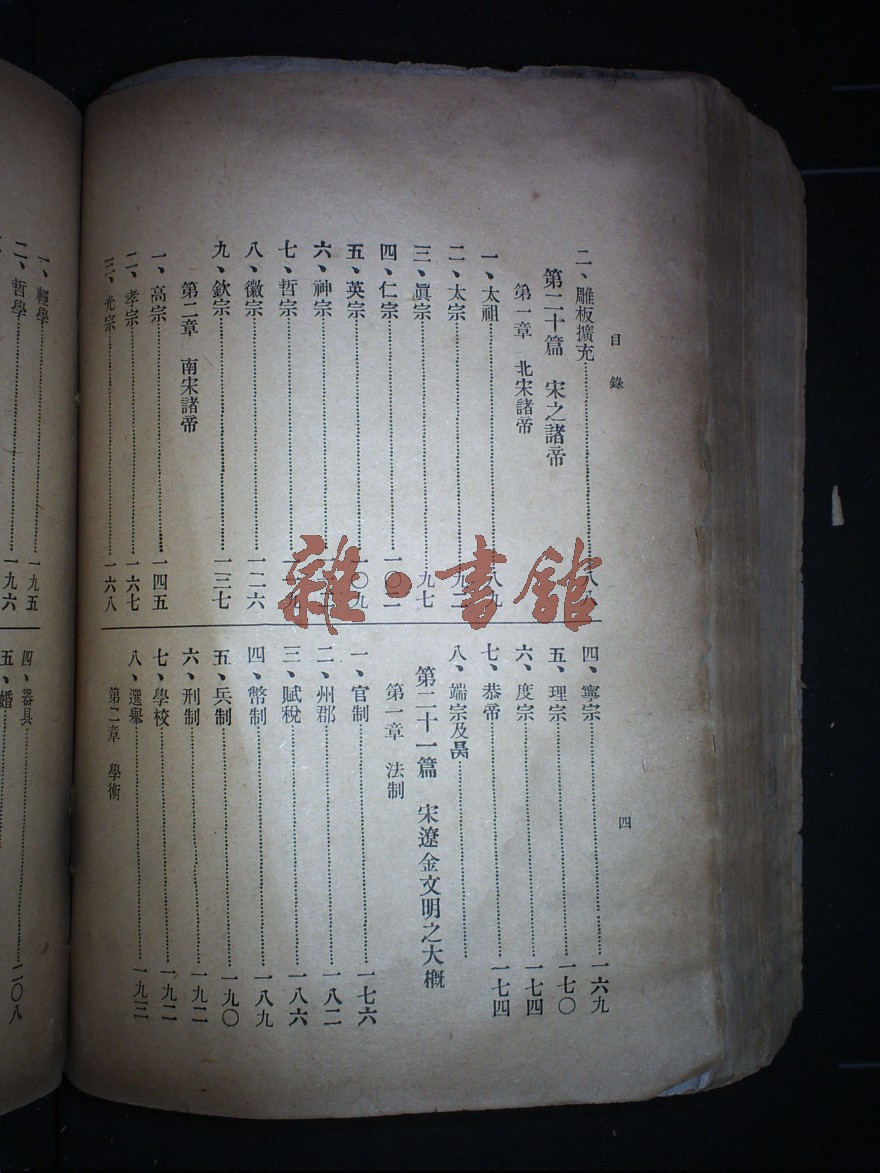 目錄
四
二、雕板擴充……八八
第二十篇　宋之諸帝
第一章　北宋諸帝
一、太祖……八九
二、太宗……九二
三、眞宗……九七
四、仁宗……一〇二
五、英宗……一〇九
六、神宗……
七、哲宗……
八、徽宗……一二六
九、欽宗……一三七
第二章　南宋諸帝
一、高宗……一四五
二、孝宗……一六七
三、光宗……一六八
四、寧宗……一六九
五、理宗……一七〇
六、度宗……一七四
七、恭帝……一七四
八、端宗及昺……
第二十一篇　宋遼金文明之大概
第一章　法制
一、官制……一七六
二、州郡……一八二
三、賦稅……一八六
四、幣制……一八九
五、兵制……一九〇
六、刑制……一九二
七、學校……一九二
八、選舉……一九三
第二章　學術
一、經學……一九五
二、哲學……一九六
四、器具……二〇八
五、婚
雜·書館